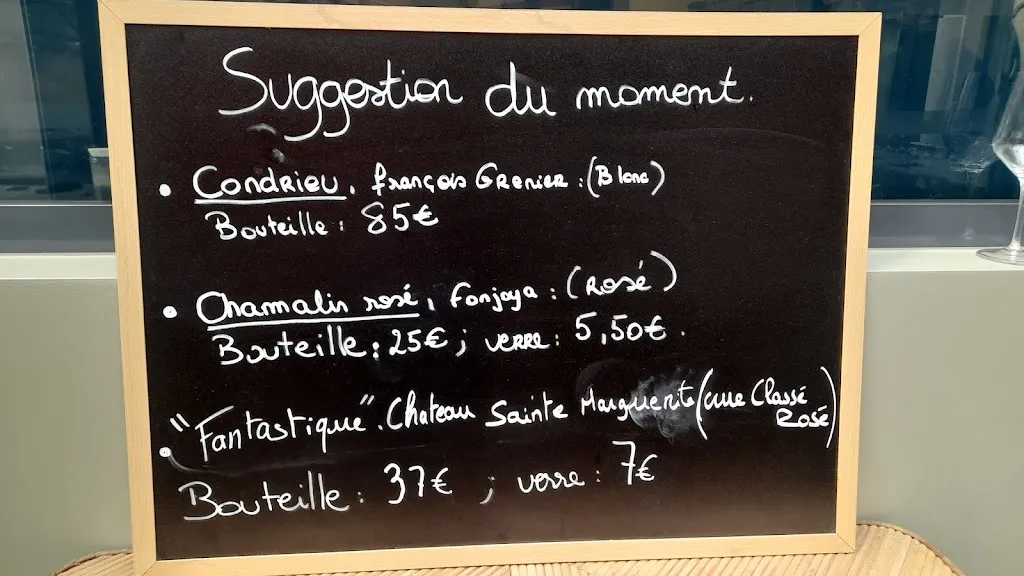 Suggestion du moment.
• Condrieu, François Grenier : (Blanc)
Bouteille : 85€
• Chamalin rosé, Fonjoya : (Rosé)
Bouteille : 25€ ; verre : 5,50€.
• "Fantastique". Chateau Sainte Marguerite (crue Classé
Rosé)
Bouteille : 37€ ; verre : 7€